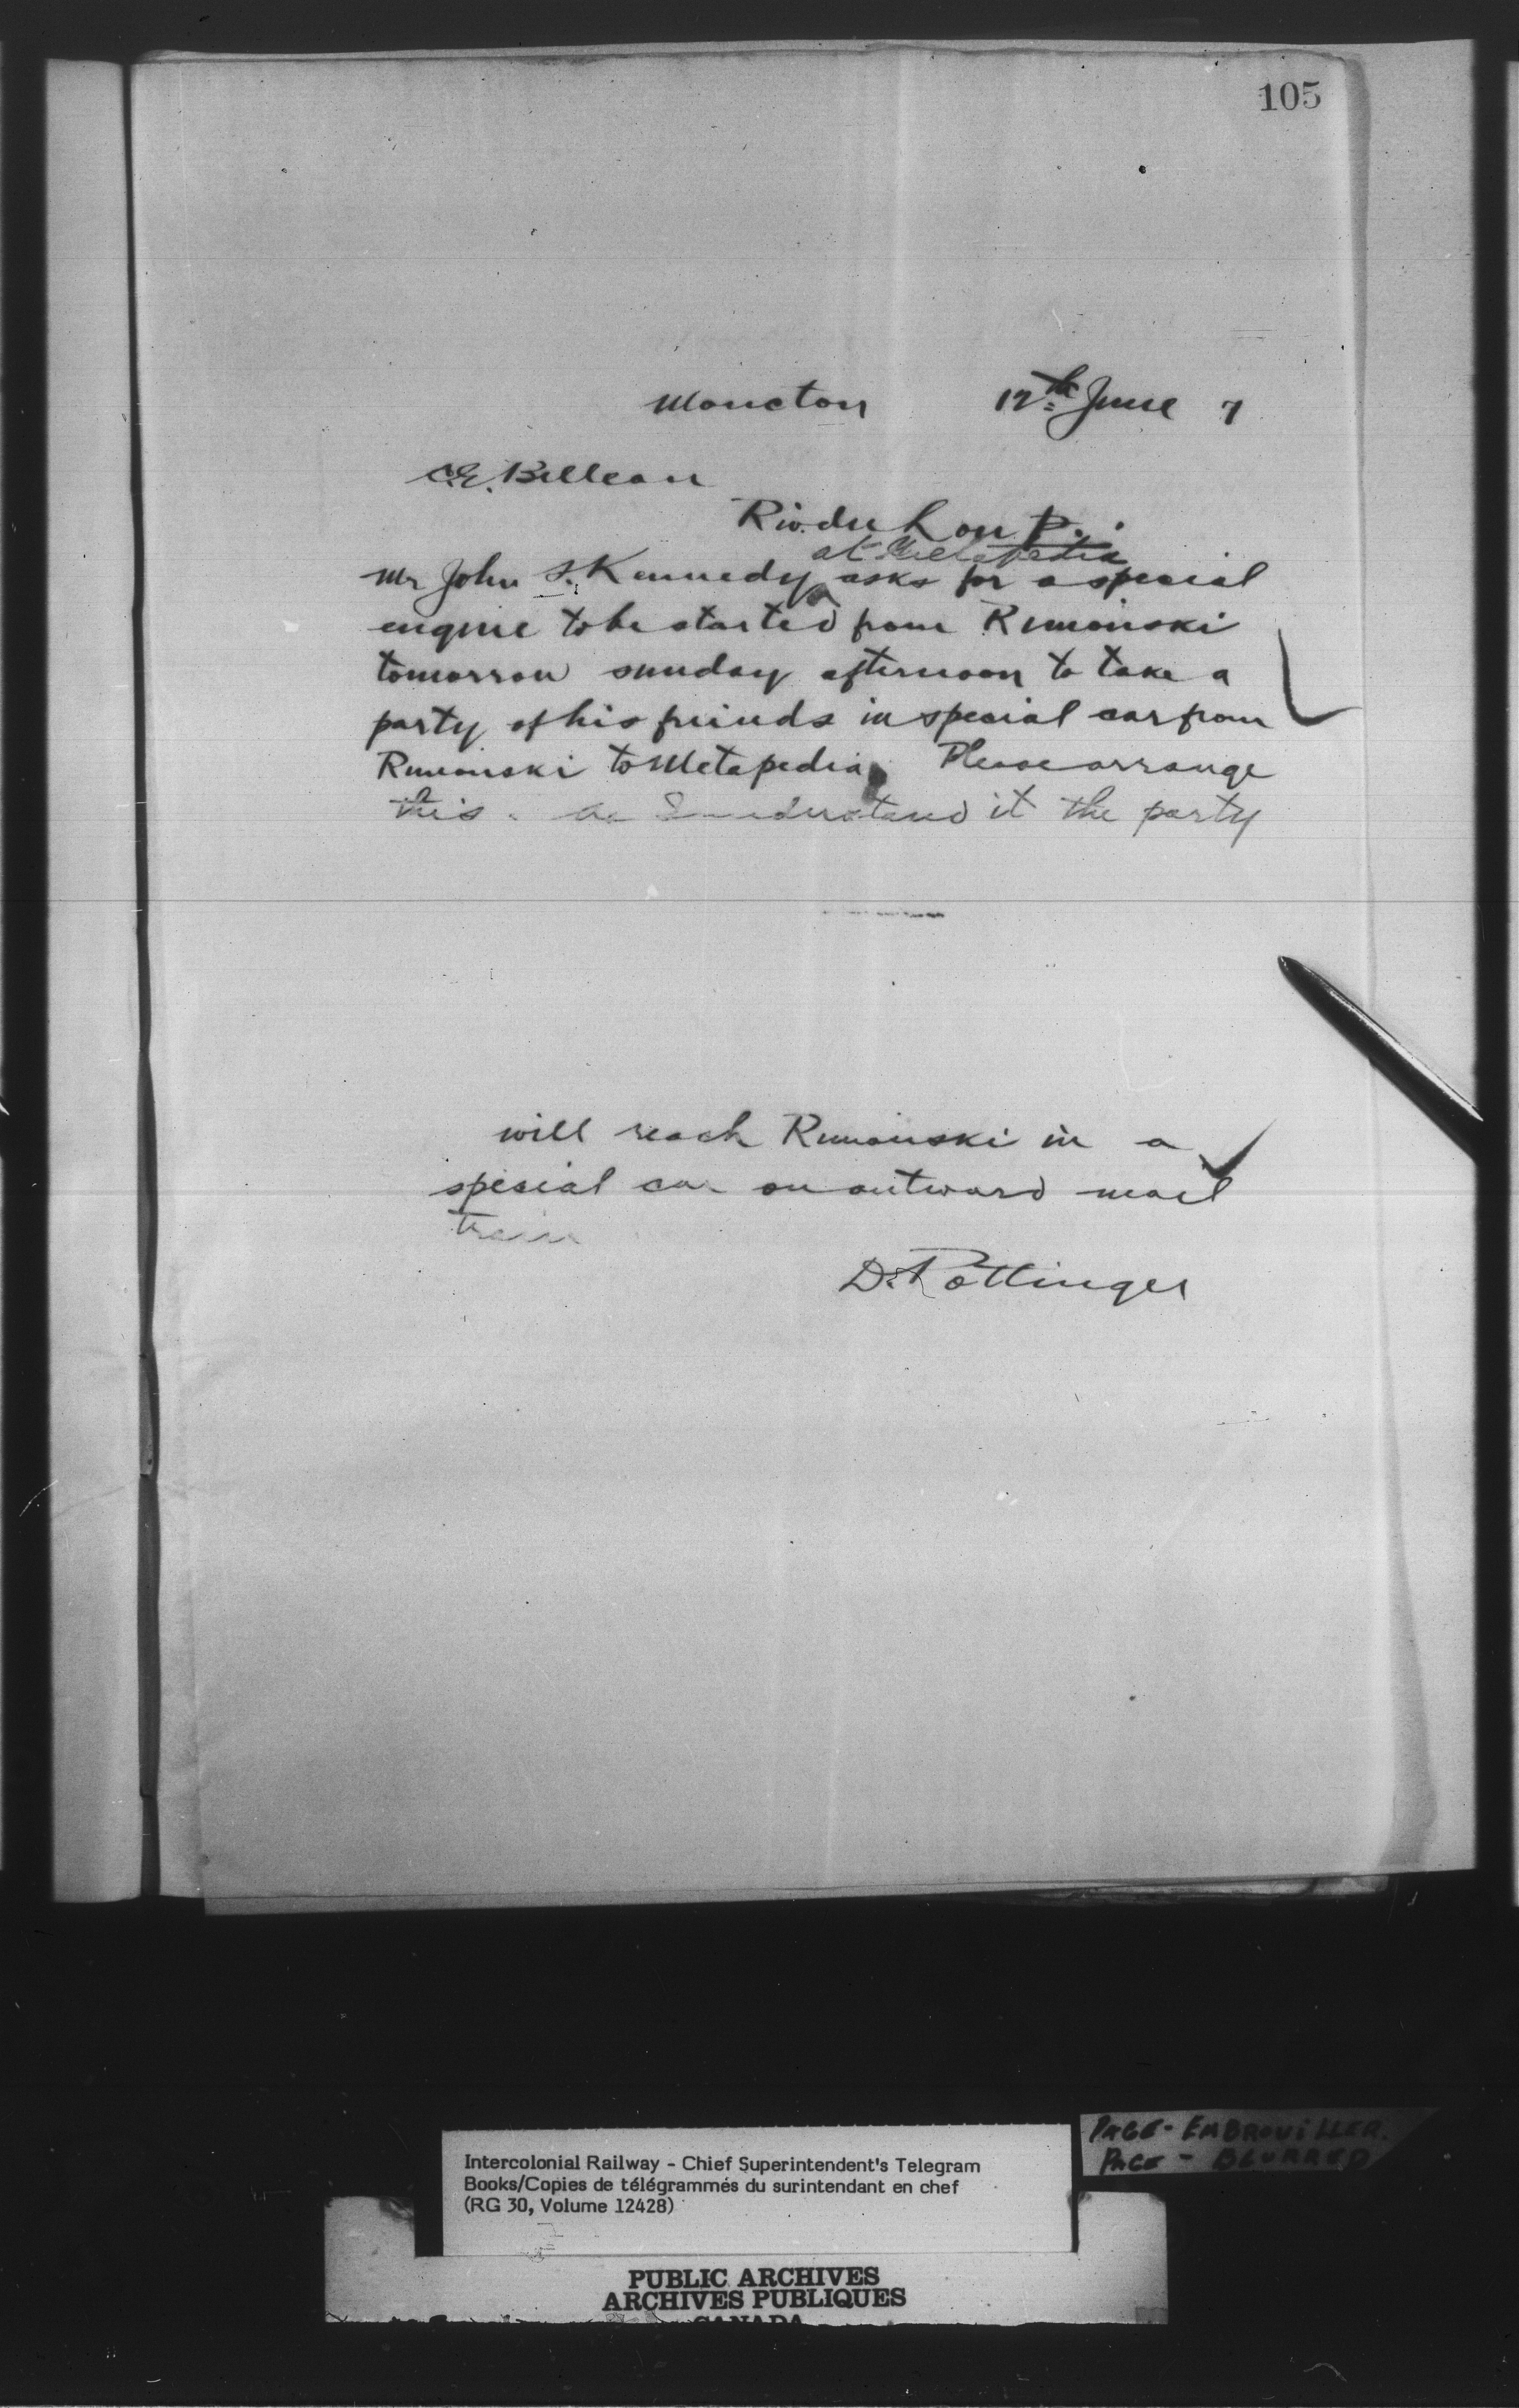 105
Moncton 12th June 7
C.E. Belleau
Riv. du Loup.
at Metapedia
Mr John S. Kennedy asks for a special
engine to be started from Rimouski
tomorrow sunday afternoon to take a
party of his friends in special car from
Rimouski to Metapedia. Please arrange
this. As I understand it the party
will reach Rimouski in a
special car on outward mail
train
D. Pottinger
PAGE - EMBROUILLER.
PAGE - BLURRED
Intercolonial Railway - Chief Superintendent's Telegram
Books/Copies de télégrammés du surintendant en chef
(RG 30, Volume 12428)
PUBLIC ARCHIVES
ARCHIVES PUBLIQUES
CANADA